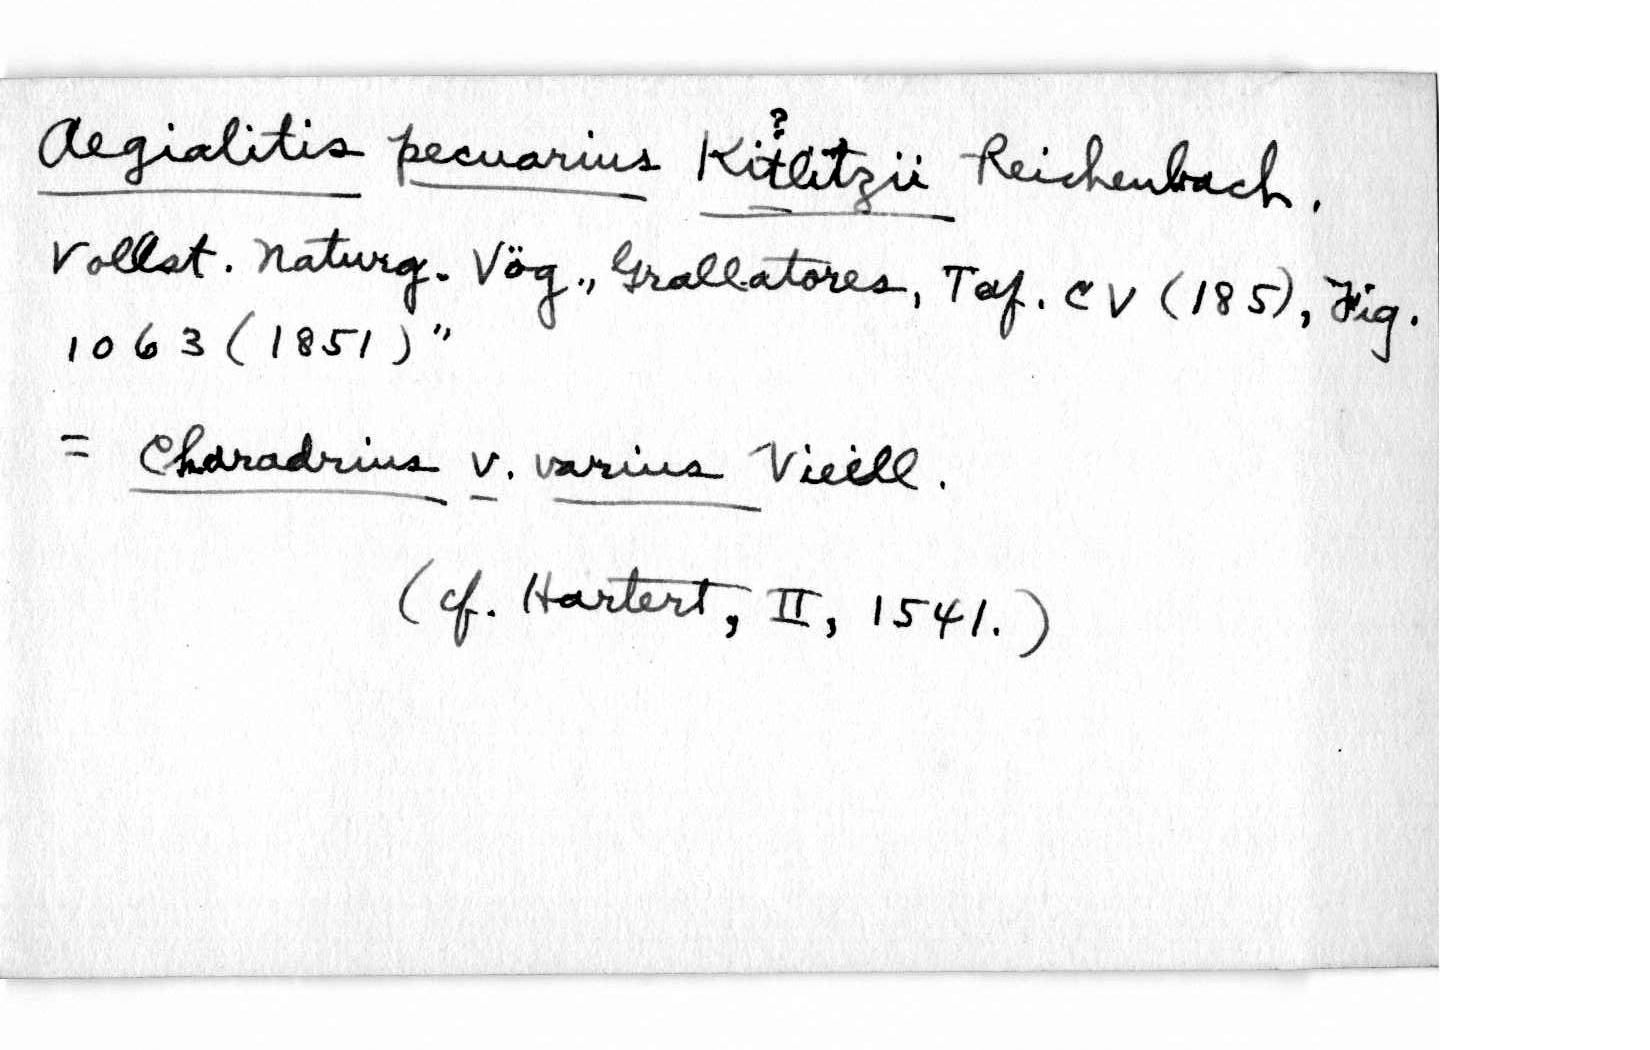 Aegialitis pecuarius Kitlitzii Reichenbach.
?
Vollst. Naturg. Vög., Grallatores, Taf. CV (185), Fig.
1063 (1851)"
= Charadrius v. varius Vieill.
(cf. Hartert, II, 1541.)